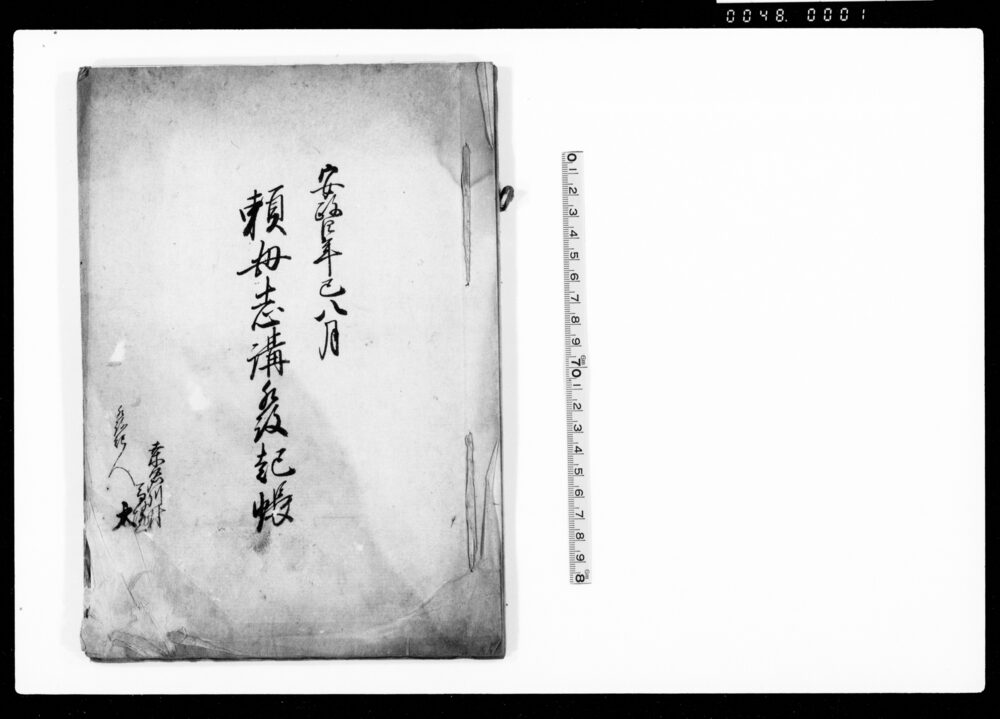 0048. 0001
安政四年巳八月
頼母志講発起帳
発起人
0 1 2 3 4 5 6 7 8 9 10 1 2 3 4 5 6 7 8 9